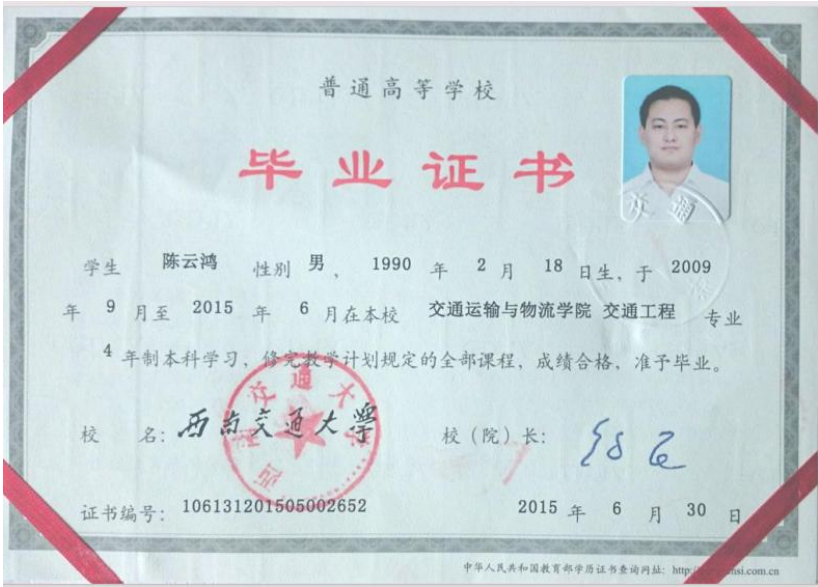 普通高等学校
毕业证书
学生 陈云鸿 性别 男 、 1990 年 2 月 18 日生，于 2009
年 9 月至 2015 年 6 月在本校 交通运输与物流学院 交通工程 专业
4 年制本科学习，修完教学计划规定的全部课程，成绩合格，准予毕业。
校 名：西南交通大学 校（院）长：
西南交通大学
证书编号：106131201505002652 2015 年 6 月 30 日
中华人民共和国教育部学历证书查询网址：http:
.com.cn